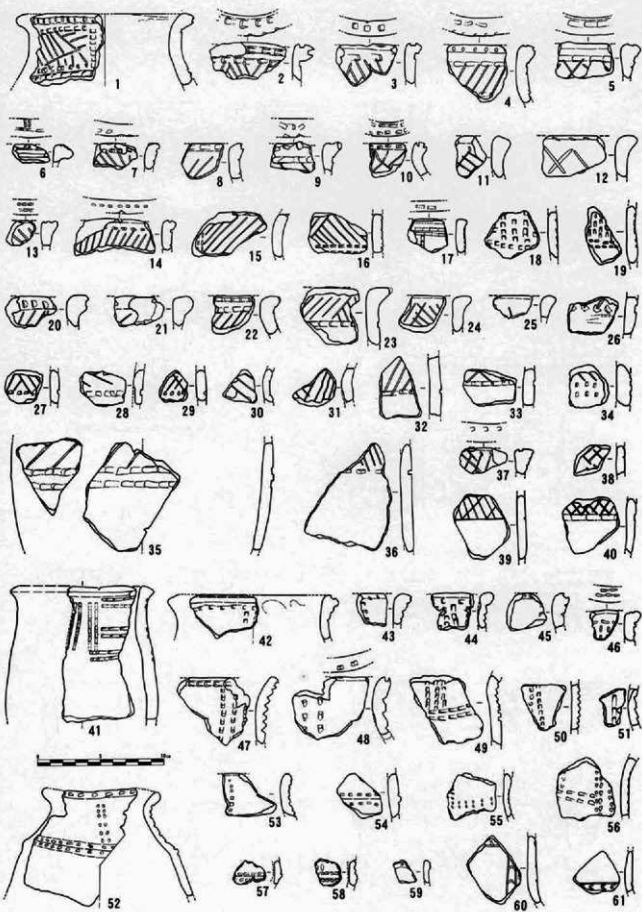 1 2 3 4 5
6 7 8 9 10 11 12
13 14 15 16 17 18 19
20 21 22 23 24 25 26
27 28 29 30 31 32 33 34
35 36 37 38
39 40
41 42 43 44 45 46
47 48 49 50 51
52 53 54 55 56
57 58 59 60 61